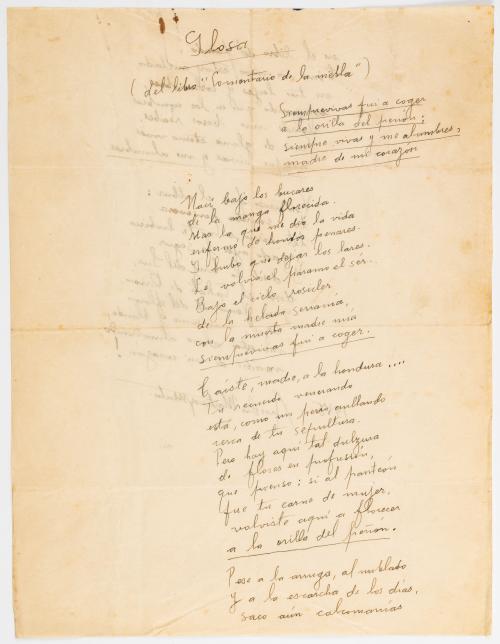 Glosa
(del libro "Comentario de la niebla")
Siemprevivas fui a coger
a la orilla del peñón;
siempre vivas y me alumbres,
madre de mi corazón
Nací bajo los bucares
de la manga florecida.
Mas la que me dio la vida
enfermó de hondos penares.
Y hubo que dejar los lares.
Le volvía el páramo el sér.
Bajo el cielo rosicler
de la helada serranía,
con la muerta madre mía
siemprevivas fui a coger.
Caíste, madre, a la hondura....
Tu recuerdo venerando
está, como un perro, aullando
cerca de tu sepultura.
Pero hay aquí tal dulzura
de flores en profusión,
que pienso: si al panteón
fue tu carne de mujer,
volviste aquí a florecer
a la orilla del peñón.
Pese a la arruga, al nublado
y a la escarcha de los días,
saco aún calcomanías